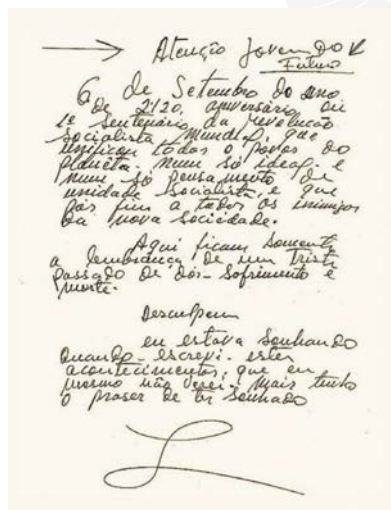 Atenção Jovem do
Futuro
6 de Setembro do ano
de 2120, aniversário ou
1º Sentenário da revolução
Socialista Mundial, que
unificou todos o povos do
planêta. num só ideal e
num só pensamento de
unidade socialista, e que
pôs fim a todos os inimigos
da nova sociedade.
Aqui ficam somente
a lembrança de um triste
passado de dor - sofrimento e
morte.
Desculpem
eu estava sonhando
quando - escrevi. estes
acontecimentos, que eu
mesmo não verei. mais tenho
o praser de ter sonhado